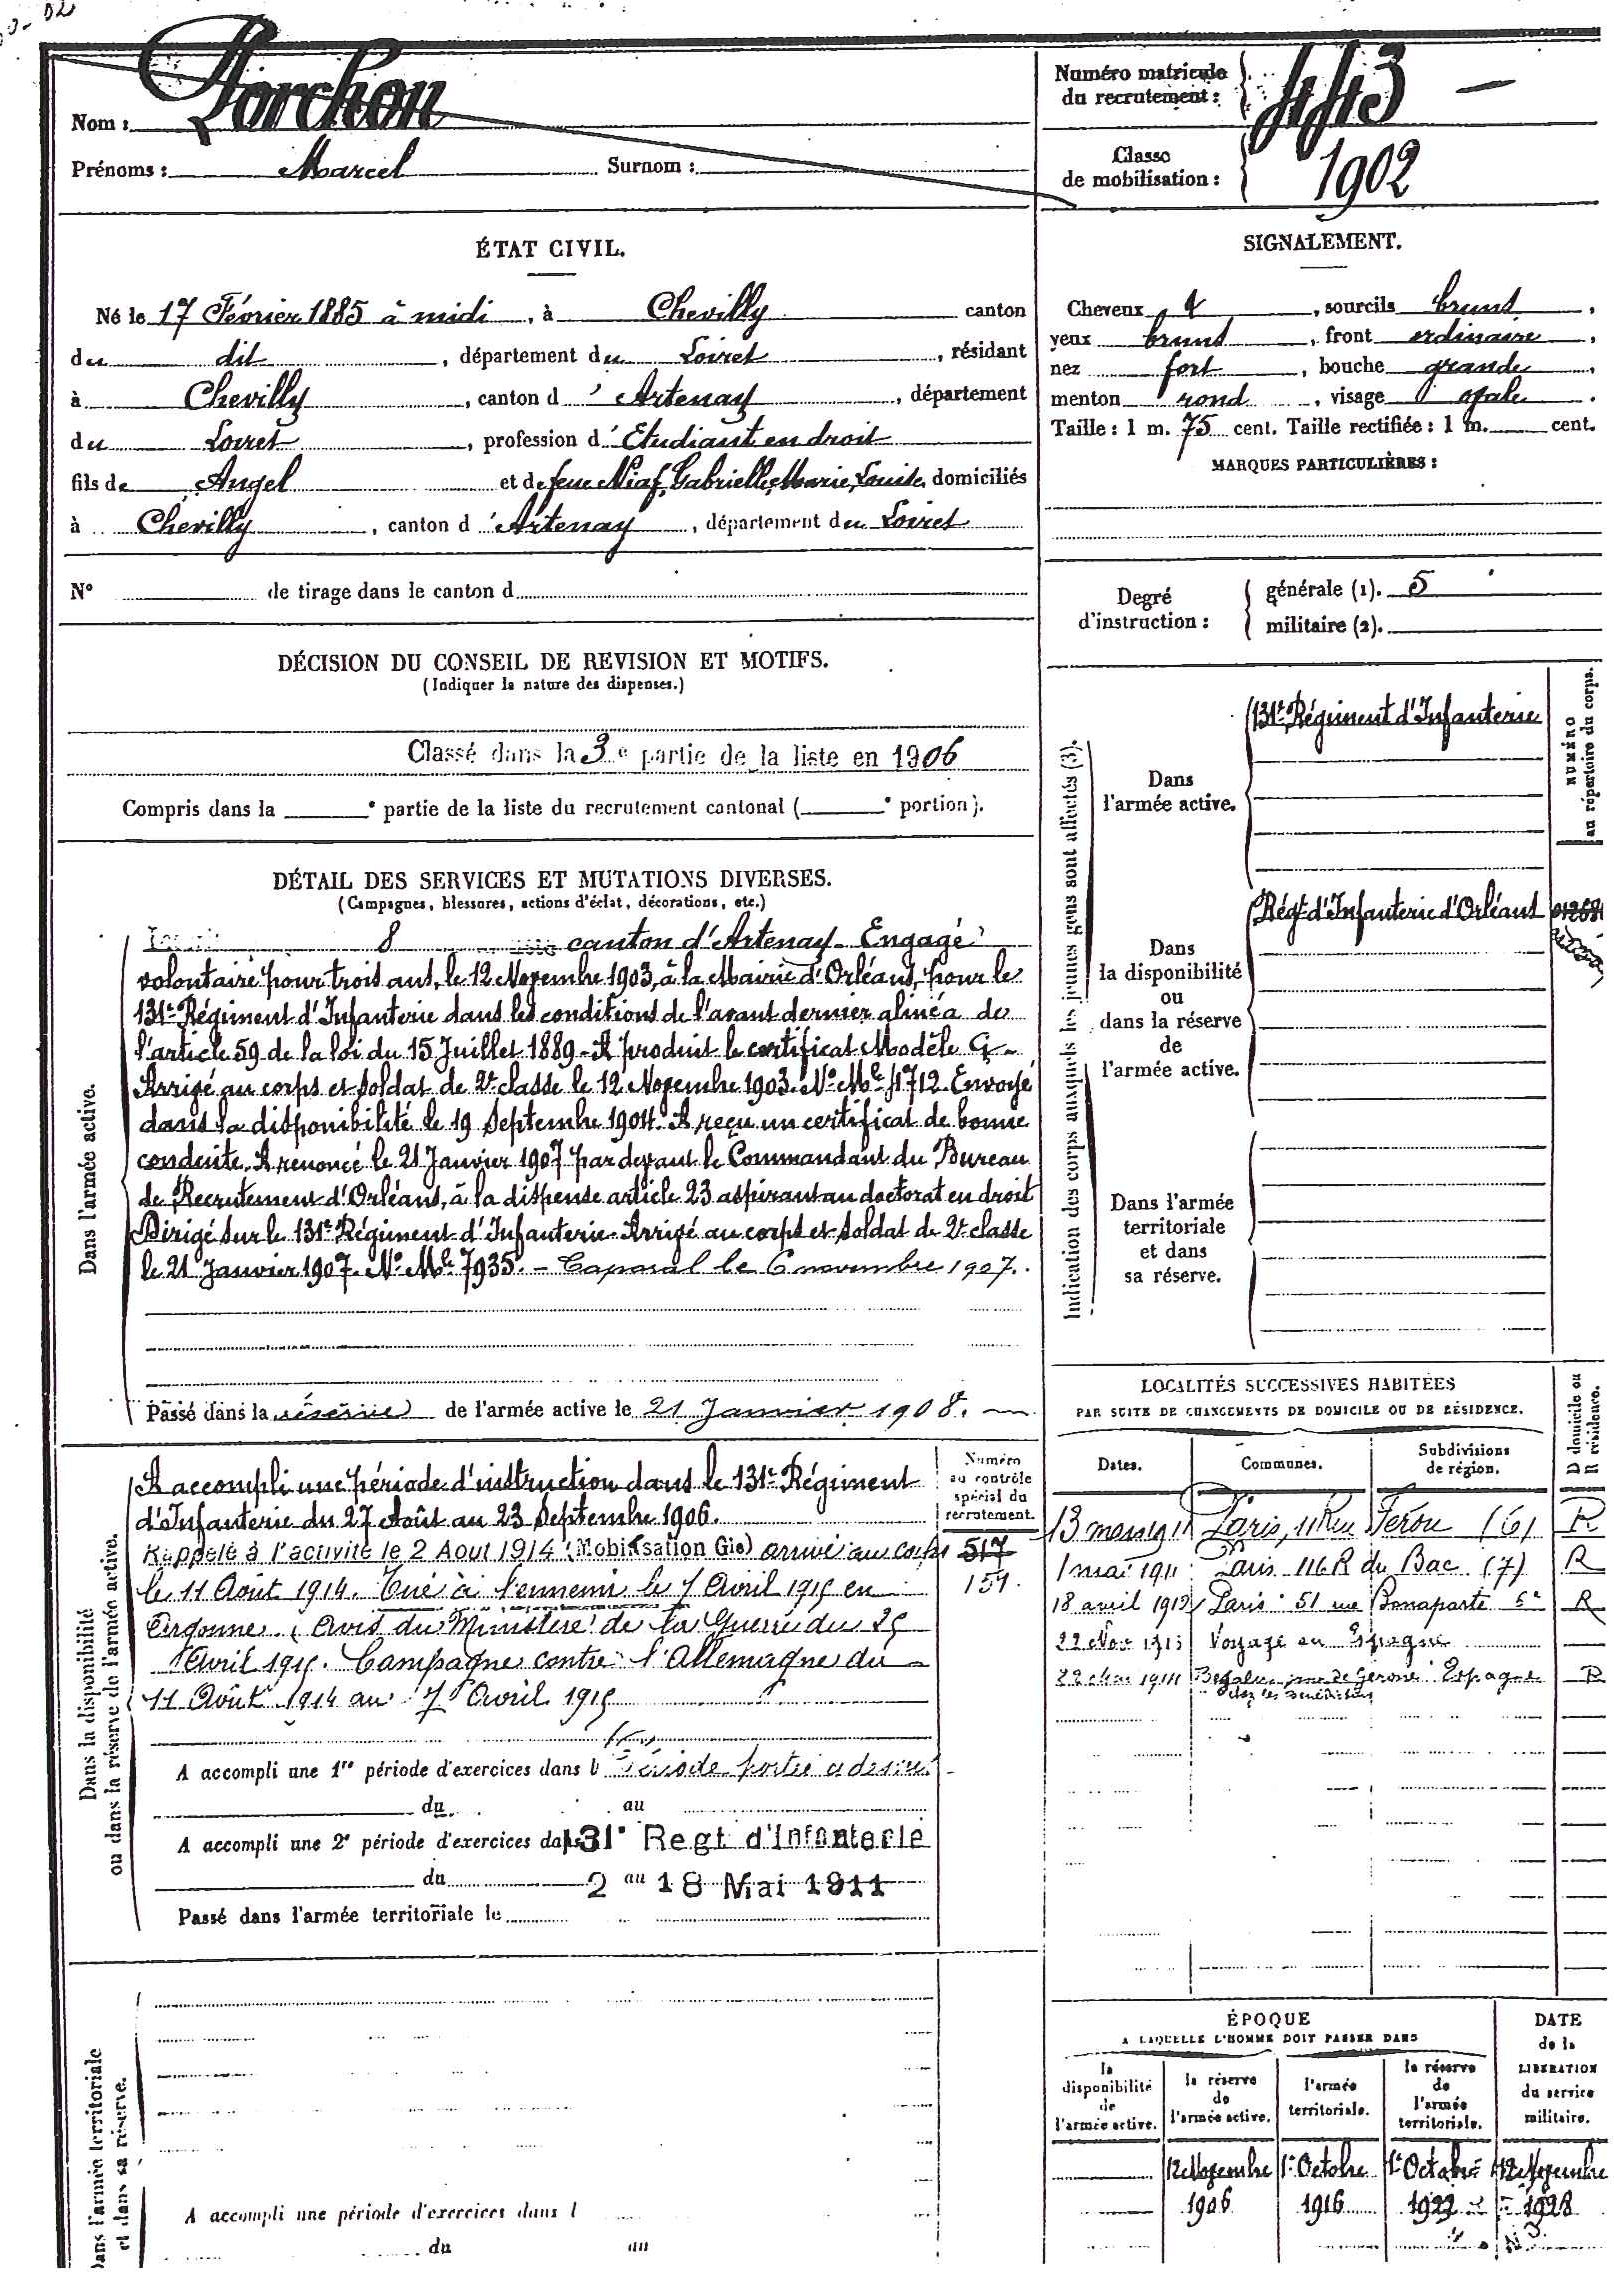 Nom : Porchon
Prénoms : Marcel Surnom :
Numéro matricule
du recrutement : 443
Classe
de mobilisation : 1902
ÉTAT CIVIL.
Né le 17 Février 1885 à midi, à Chevilly canton
du dit, département du Loiret, résidant
à Chevilly, canton d'Artenay, département
du Loiret, profession d'Etudiant en droit
fils de Angel et de feue Niaf, Gabrielle, Marie, Louise, domiciliés
à Chevilly, canton d'Artenay, département du Loiret
N° de tirage dans le canton d
SIGNALEMENT.
Cheveux et, sourcils bruns,
yeux bruns, front ordinaire,
nez fort, bouche grande,
menton rond, visage ovale.
Taille : 1 m. 75 cent. Taille rectifiée : 1 m. cent.
MARQUES PARTICULIÈRES :
Degré
d'instruction :
générale (1). 5
militaire (2).
DÉCISION DU CONSEIL DE REVISION ET MOTIFS.
(Indiquer la nature des dispenses.)
Classé dans la 3e partie de la liste en 1906
Compris dans la e partie de la liste du recrutement cantonal ( e portion).
DÉTAIL DES SERVICES ET MUTATIONS DIVERSES.
(Campagnes, blessures, actions d'éclat, décorations, etc.)
Dans l'armée active.
8 canton d'Artenay - Engagé
volontaire pour trois ans, le 12 Novembre 1903, à la Mairie d'Orléans, pour le
131e Régiment d'Infanterie dans les conditions de l'avant dernier alinéa de
l'article 59 de la loi du 15 Juillet 1889 - A produit le certificat Modèle G -
Arrivé au corps et soldat de 2e classe le 12 Novembre 1903. No Mle 4712. Envoyé
dans la disponibilité le 19 Septembre 1904. A reçu un certificat de bonne
conduite. A renoncé le 21 Janvier 1907 par devant le Commandant du Bureau
de Recrutement d'Orléans, à la dispense article 23 aspirant au doctorat en droit
Dirigé sur le 131e Régiment d'Infanterie - Arrivé au corps et soldat de 2e classe
le 21 Janvier 1907. No Mle 7935. - Caporal le 6 novembre 1907.
Passé dans la réserve de l'armée active le 21 Janvier 1908.
Indication des corps auxquels les jeunes gens sont affectés (3).
NUMÉRO
au répertoire du corps.
Dans
l'armée active.
131e Régiment d'Infanterie
Dans
la disponibilité
ou
dans la réserve
de
l'armée active.
Régt d'Infanterie d'Orléans
Dans l'armée
territoriale
et dans
sa réserve.
Dans la disponibilité
ou dans la réserve de l'armée active.
Numéro
au contrôle
spécial du
recrutement.
517
154.
A accompli une période d'instruction dans le 131e Régiment
d'Infanterie du 27 Août au 23 Septembre 1906.
Rappelé à l'activité le 2 Aout 1914 (Mobilisation Gle) arrivé au corps
le 11 Août 1914. Tué à l'ennemi le 7 Avril 1915 en
Argonne. (Avis du Ministère de la Guerre du 25
Avril 1915. Campagne contre l'Allemagne du
11 Août 1914 au 7 Avril 1915
A accompli une 1re période d'exercices dans l Période portée ci dessus
du au
A accompli une 2e période d'exercices dans 131e Regt d'Infanterie
du 2 au 18 Mai 1911
Passé dans l'armée territoriale le
LOCALITÉS SUCCESSIVES HABITÉES
PAR SUITE DE CHANGEMENTS DE DOMICILE OU DE RÉSIDENCE.
Dates. Communes. Subdivisions
de région.
D domicile ou
R résidence.
13 mars 1911 Paris, 11 Rue Férou (6) R
1 mai 1911 Paris 116 R du Bac (7) R
18 avril 1912 Paris 51 rue Bonaparte 6e R
22 Nov 1913 Voyage en Espagne
22 Mai 1914 Besalu, prov de Gerone Espagne R
chez les Bénédictins
Dans l'armée territoriale
et dans sa réserve.
A accompli une période d'exercices dans l
du au
ÉPOQUE
A LAQUELLE L'HOMME DOIT PASSER DANS
la
disponibilité
de
l'armée active.
la réserve
de
l'armée active.
l'armée
territoriale.
la réserve
de
l'armée
territoriale.
DATE
de la
LIBÉRATION
du service
militaire.
12 Novembre 1er Octobre 1er Octobre 12 Novembre
1906 1916 1922 1928